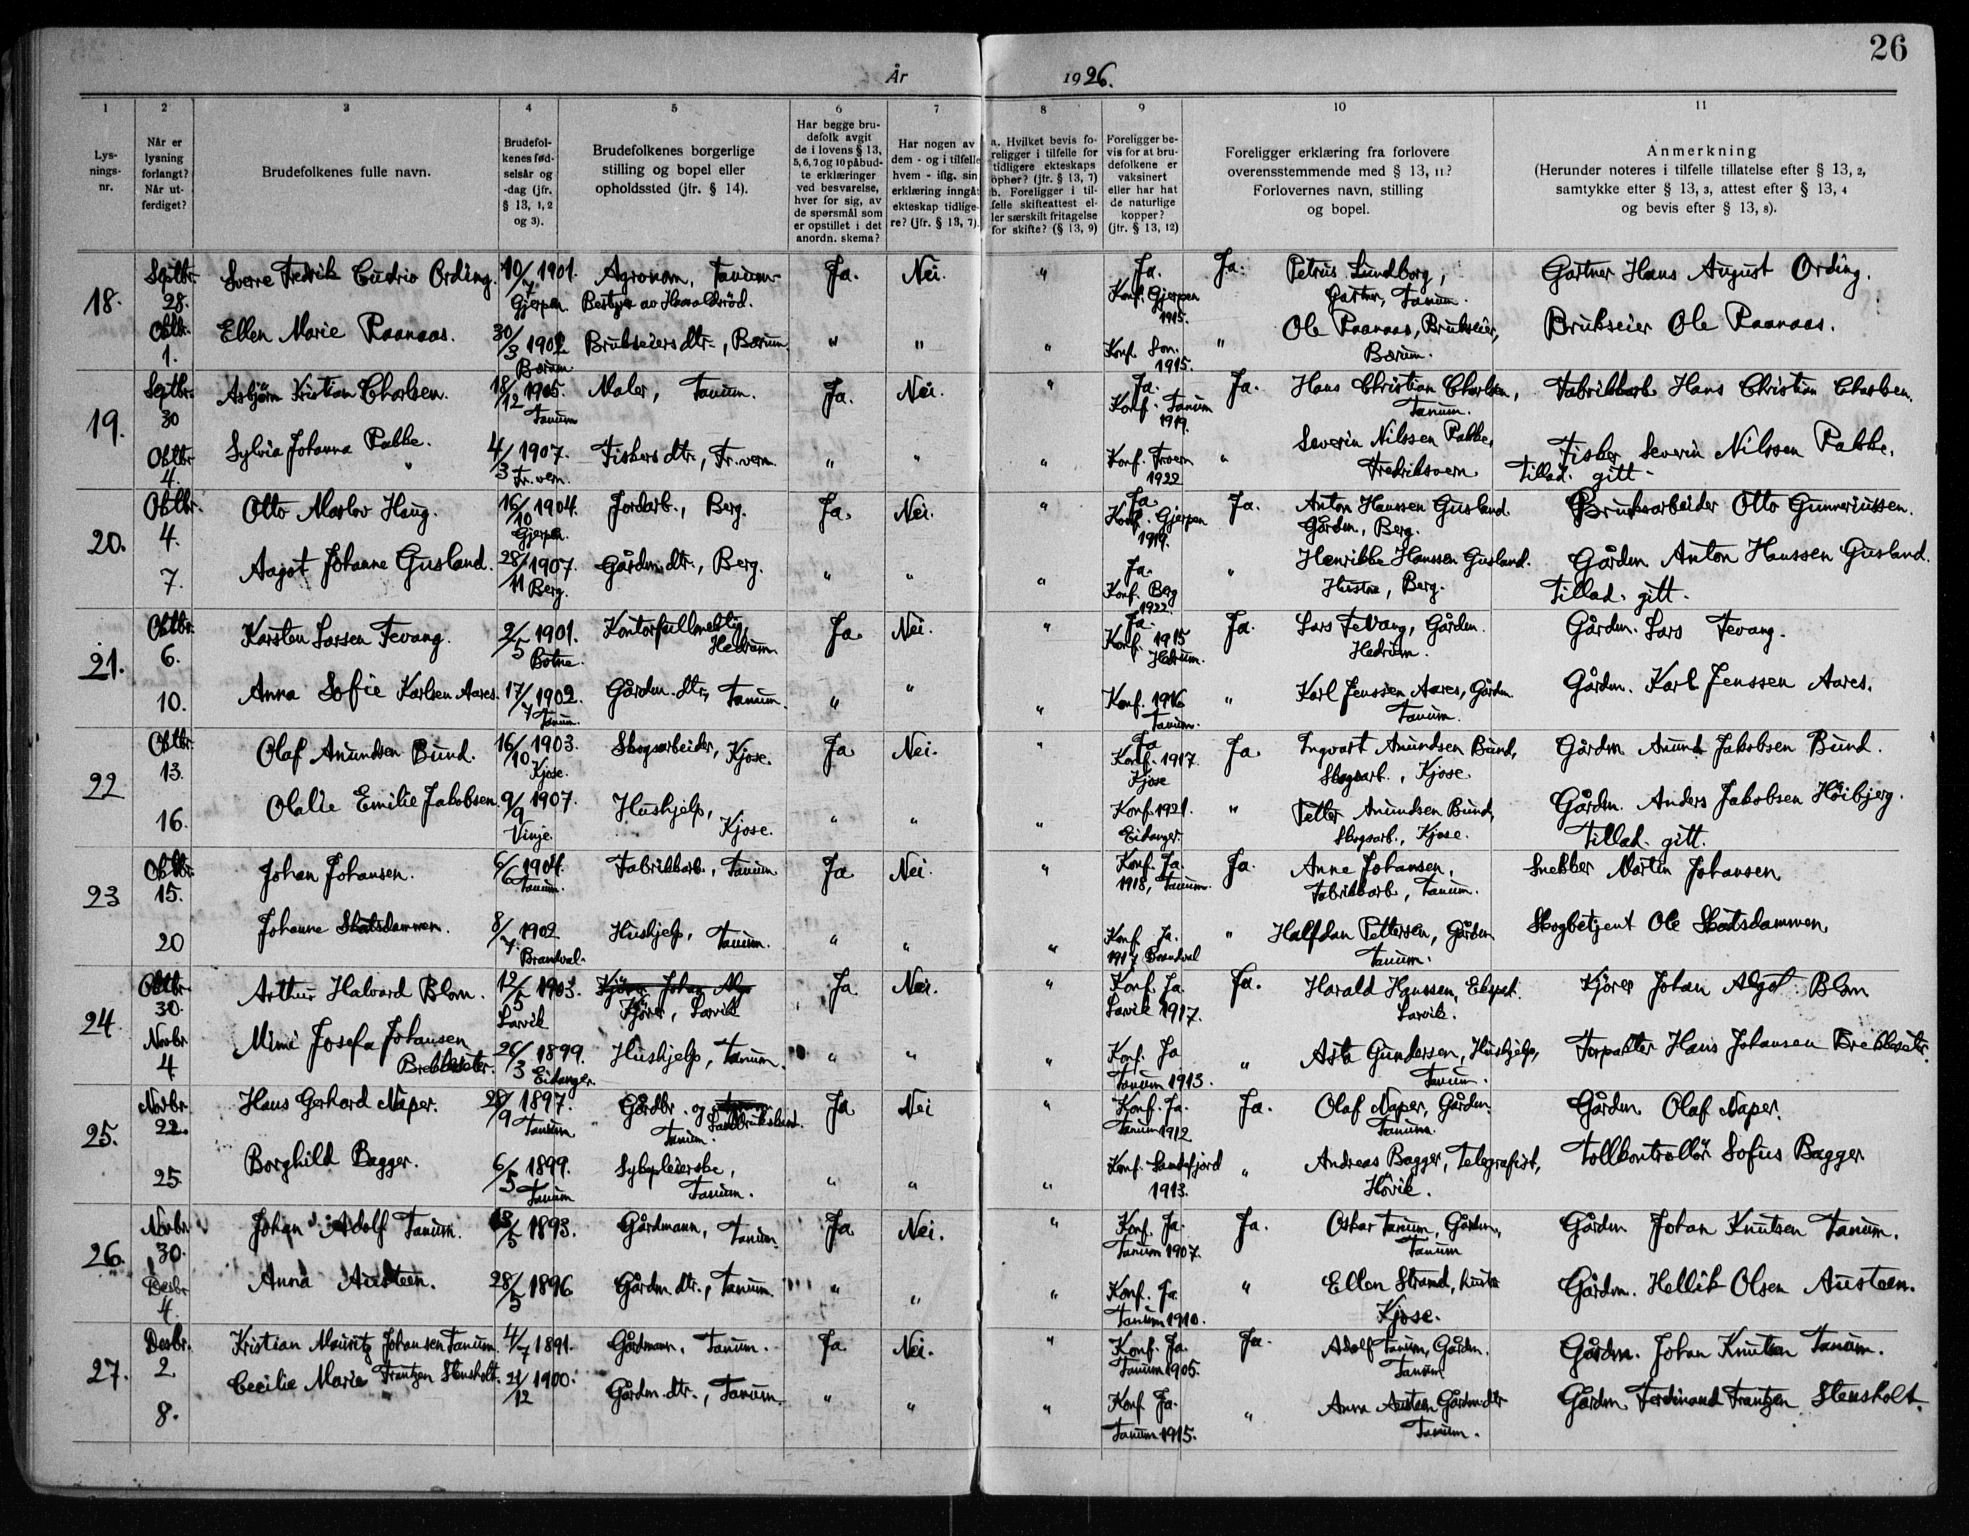 26
År 1926.
1 2 3 4 5 6 7 8 9 10 11
Lys-
nings-
nr.
Når er
lysning
forlangt?
Når ut-
ferdiget?
Brudefolkenes fulle navn.
Brudefol-
kenes fød-
selsår og
-dag (jfr.
§ 13, 1, 2
og 3).
Brudefolkenes borgerlige
stilling og bopel eller
opholdssted (jfr. § 14).
Har begge bru-
defolk avgit
de i lovens § 13,
5, 6, 7 og 10 påbud-
te erklæringer
ved besvarelse,
hver for sig, av
de spørsmål som
er opstillet i det
anordn. skema?
Har nogen av
dem - og i tilfelle
hvem - iflg. sin
erklæring inngåt
ekteskap tidlige-
re? (jfr. § 13, 7).
a. Hvilket bevis fo-
religger i tilfelle for
tidligere ekteskaps
ophør? (jfr. § 13, 7)
b. Foreligger i til-
felle skifteattest el-
ler særskilt fritagelse
for skifte? (§ 13, 9)
Foreligger be-
vis for at bru-
defolkene er
vaksinert
eller har hat
de naturlige
kopper?
(jfr. § 13, 12)
Foreligger erklæring fra forlovere
overensstemmende med § 13, 11?
Forlovernes navn, stilling
og bopel.
Anmerkning
(Herunder noteres i tilfelle tillatelse efter § 13, 2,
samtykke efter § 13, 3, attest efter § 13, 4
og bevis efter § 13, 8).
18. Septbr. 28. Sverre Fredrik Cudrio Ording. 10/7 1901. Gjerpen. Agronom, Tanum. Bestyrer av Haraldsröd. Ja. Nei. " Ja. Konf. Gjerpen 1915. Ja. Petrus Lundborg, Gartner, Tanum. Gartner Hans August Ording.
Oktbr. 1. Ellen Marie Raanaas. 30/3 1902 Bærum. Brukseiers dtr., Bærum. " " " Konf. Son. 1915. " Ole Raanaas, Brukseier, Bærum. Brukseier Ole Raanaas.
19. Septbr. 30 Asbjörn Kristian Charlsen. 18/12 1905. Tanum Maler, Tanum. Ja. Nei. " Ja. Konf. Tanum 1919. Ja. Hans Christian Charlsen, Tanum. Fabrikkarb. Hans Christian Charlsen.
Oktbr 4. Sylvia Johanna Pakke. 4/3 1907. Fr.vern. Fiskers dtr., Fr.vern. " " " Konf. Frvern 1922 " Severin Nilssen Pakke, Fredriksvern. Fisker Severin Nilssen Pakke. Tillad. gitt.
20. Oktbr. 4. Otto Marlov Haug. 16/10 1904. Gjerpen. Jordarb., Berg. Ja. Nei. " Ja Konf. Gjerpen 1919. Ja. Anton Hanssen Gusland. Gårdm., Berg. Bruksarbeider Otto Gunneriussen.
7. Aagot Johanne Gusland. 28/11 1907. Berg. Gårdm. dtr., Berg. " " " Ja. Konf. Berg 1922. " Henrikke Hanssen Gusland. Hustru, Berg. Gårdm. Anton Hanssen Gusland. Tillad. gitt.
21. Oktbr. 6. Karsten Larsen Tevang. 2/5 1901. Botne. Kontorfullmektig, Hedrum. Ja. Nei. " Ja. Konf. 1915 Hedrum. Ja. Lars Tevang, Gårdm. Hedrum. Gårdm. Lars Tevang.
10. Anna Sofie Karlsen Aares. 17/7 1902. Tanum. Gårdm. dtr., Tanum. " " " Konf. 1916 Tanum. " Karl Jenssen Aares, Gårdm. Tanum. Gårdm. Karl Jenssen Aares.
22 Oktbr. 13. Olaf Amundsen Bund. 16/10 1903. Kjose. Skogsarbeider, Kjose. Ja Nei. " Ja Konf. 1917. Kjose Ja. Ingvart Amundsen Bund, Skogsarb., Kjose. Gårdm Amund Jakobsen Bund.
16. Olalie Emilie Jakobsen. 9/9 1907. Vinje. Hushjelp, Kjose. " " " Konf. 1921. Eidanger. " Petter Amundsen Bund, Skogsarb., Kjose. Gårdm. Anders Jakobsen Höibjerg. Tillad. gitt.
23 Oktbr. 15. Johan Johansen. 6/6 1904. Tanum. Fabrikkarb., Tanum Ja Nei. " Konf. Ja. 1918, Tanum. Ja. Anne Johansen, Fabrikkarb., Tanum. Snekker Martin Johansen.
20 Johanne Skatsdammen. 8/7 1902 Brandval. Hushjelp, Tanum. " " " Konf. Ja. 1917 Brandval " Halfdan Pettersen, Gårdm Tanum. Skogbetjent Ole Skatsdammen.
24. Oktbr. 30. Arthur Halvard Blom. 12/5 1903. Larvik Kjörer Johan Alg Kjörer, Larvik Ja Nei. " Konf. Ja Larvik 1917. Ja. Harald Hanssen, Eksped. Larvik. Kjörer Johan Algot Blom
Novbr 4 Mimi Josefa Johansen Brekkeseter. 26/3 1899. Eidanger. Hushjelp, Tanum. " " " Konf. Ja Tanum 1913. " Asta Gundersen, Hushjelp, Tanum. Forpakter Hans Johansen Brekkeseter.
25. Novbr. 22. Hans Gerhard Naper. 28/9 1897. Tanum Gårdbr. og Landbrukskand. Tanum. Ja Nei " Konf. Ja. Tanum 1912 Ja. Olaf Naper, Gårdm. Tanum. Gårdm. Olaf Naper.
25. Borghild Bagger. 6/5 1899. Tanum Sykepleierske, Tanum. " " " Konf. Sandefjord 1913. " Andreas Bagger, Telegrafist, Hövik. Tollkontrollör Sofus Bagger
26. Novbr. 30. Johan Adolf Tanum. /5 1893. Gårdmann, Tanum. Ja Nei. " Konf. Ja. Tanum 1907. Ja. Oskar Tanum, Gårdm., Tanum Gårdm Johan Knutsen Tanum.
Desbr 4. Anna Austeen. 28/5 1896 Gårdm. dtr., Tanum. " " " Konf. Ja. Tanum 1910. " Ellen Strand, hustr Kjose. Gårdm. Hellik Olsen Austeen.
27. Desbr. 2 Kristian Mauritz Johansen Tanum. 4/7 1891. Gårdmann, Tanum. Ja Nei. " Konf. Ja. Tanum 1905. Ja. Adolf Tanum, Gårdm. Tanum Gårdm. Johan Knutsen Tanum.
8. Cecilie Marie Frantzen Stensholt. 21/12 1900. Gårdm. dtr., Tanum. " " " Konf. Ja. Tanum 1915. " Anna Austeen Gårdm. dtr Tanum. Gårdm. Ferdinand Frantzen Stensholt.